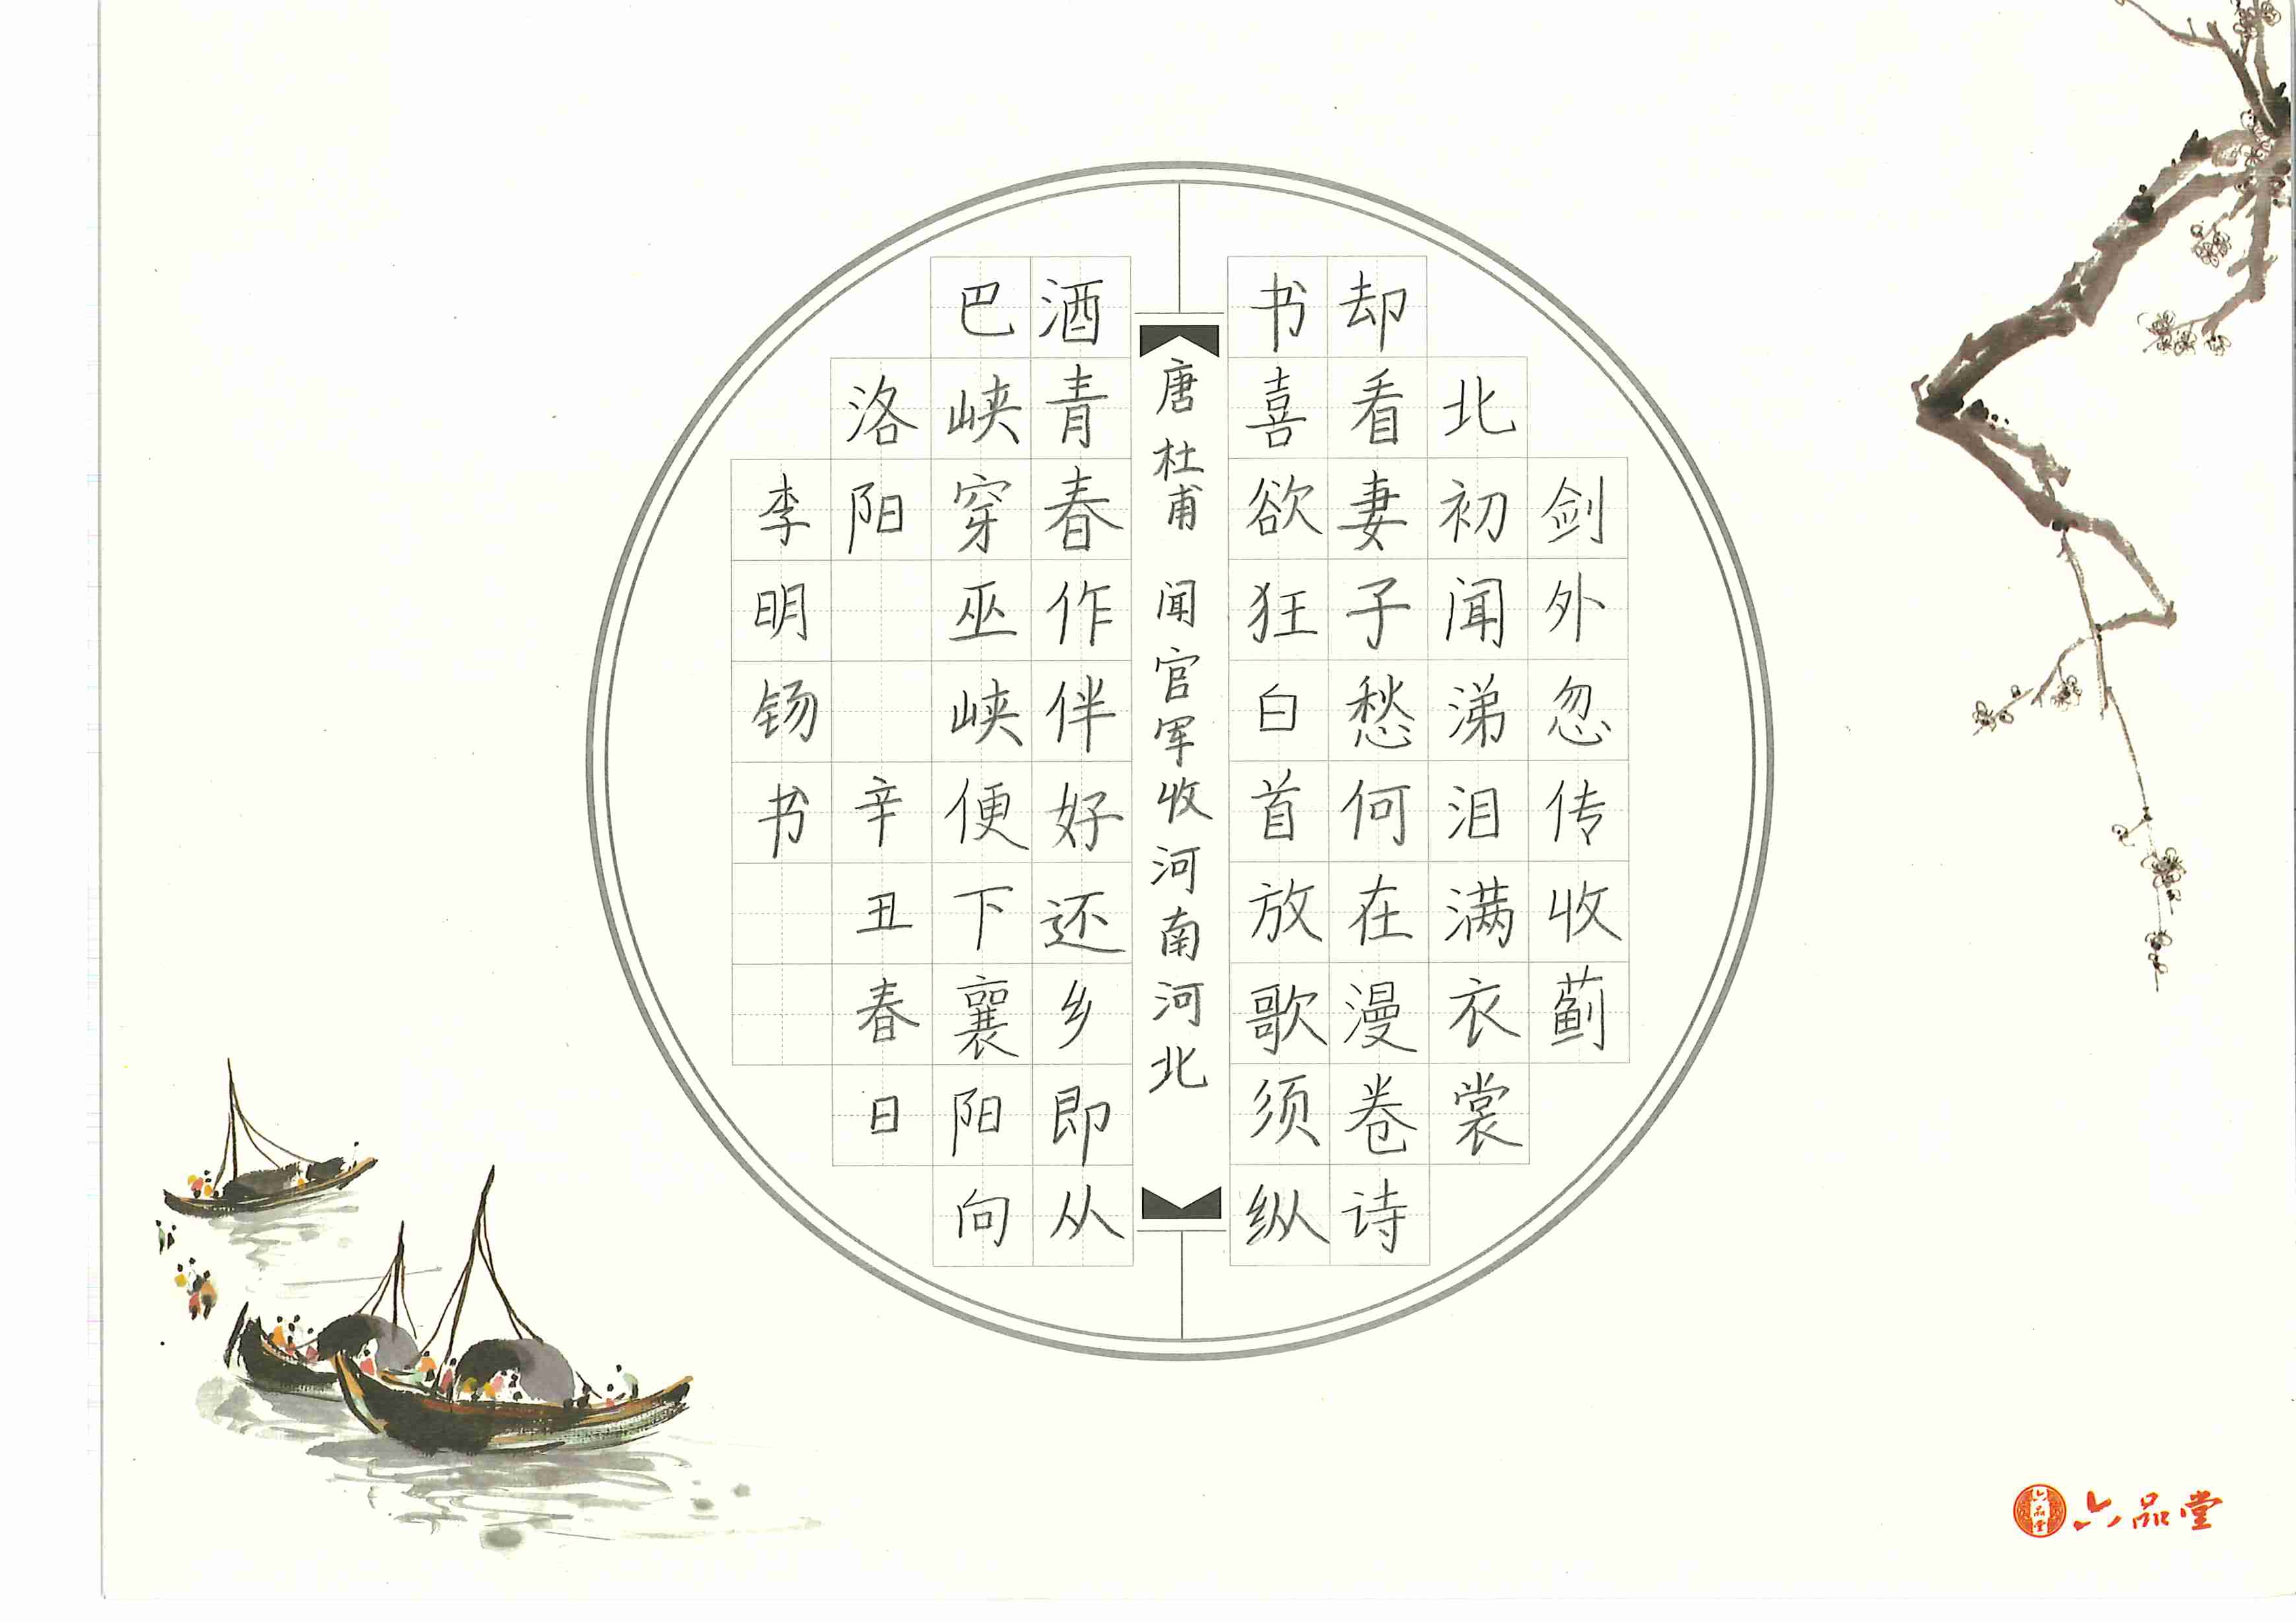 剑外忽传收蓟
北初闻涕泪满衣裳
却看妻子愁何在漫卷诗
书喜欲狂白首放歌须纵
唐 杜甫 闻官军收河南河北
酒青春作伴好还乡即从
巴峡穿巫峡便下襄阳向
洛阳 辛丑春日
李明钖书
六品堂
六品堂